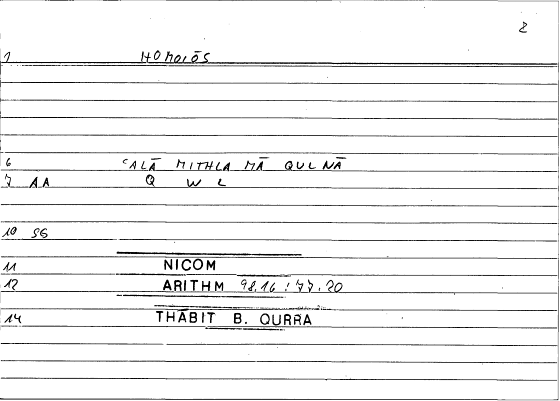 2
1 HOMOIŌS
6 ʿALĀ MITHLA MĀ QULNĀ
7 AA Q W L
10 SG
11 NICOM
12 ARITHM 98.16 : 77.20
14 THĀBIT B. QURRA